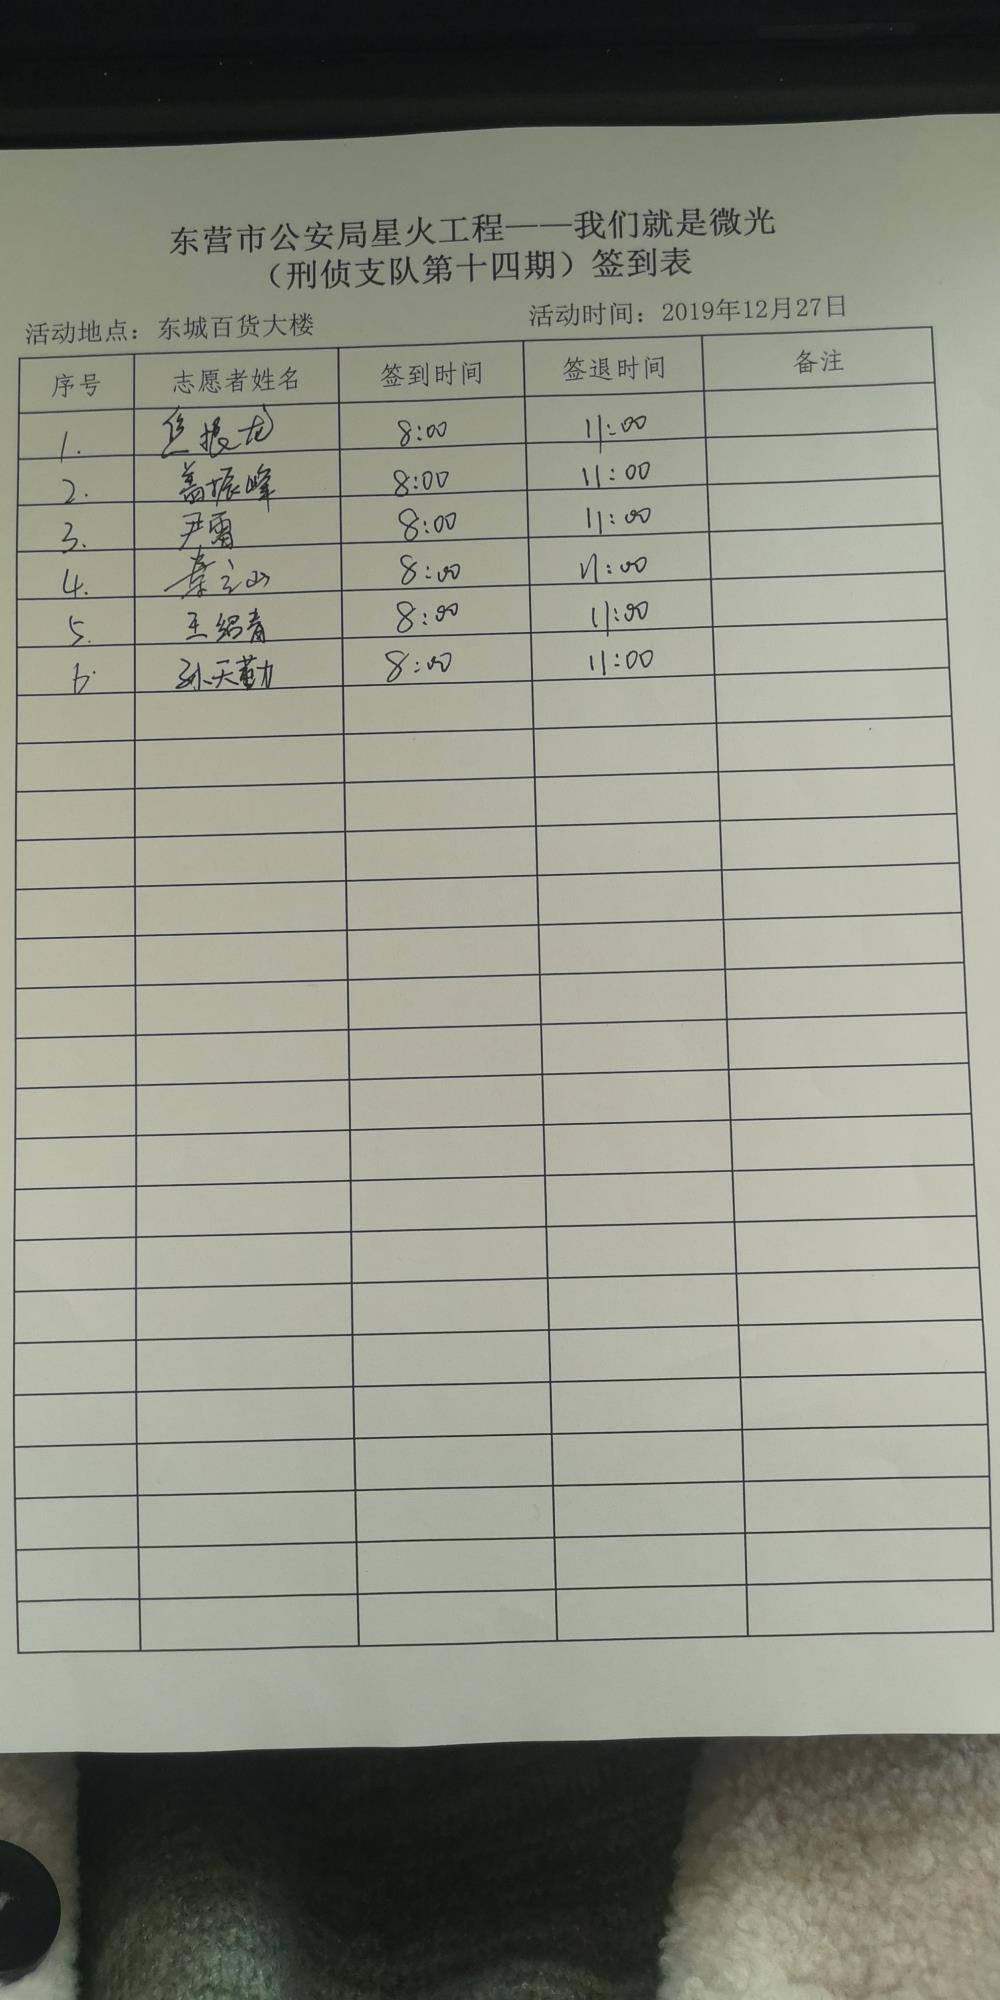 东营市公安局星火工程——我们就是微光
（刑侦支队第十四期）签到表
活动地点：东城百货大楼 活动时间：2019年12月27日
序号 志愿者姓名 签到时间 签退时间 备注
1. 焦振龙 8:00 11:00
2. 盖振峰 8:00 11:00
3. 尹雷 8:00 11:00
4. 秦立山 8:00 11:00
5. 王绍春 8:00 11:00
6. 孙天勤 8:00 11:00